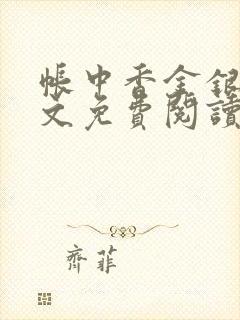 帳中香金銀
文免費閱讀
齊菲